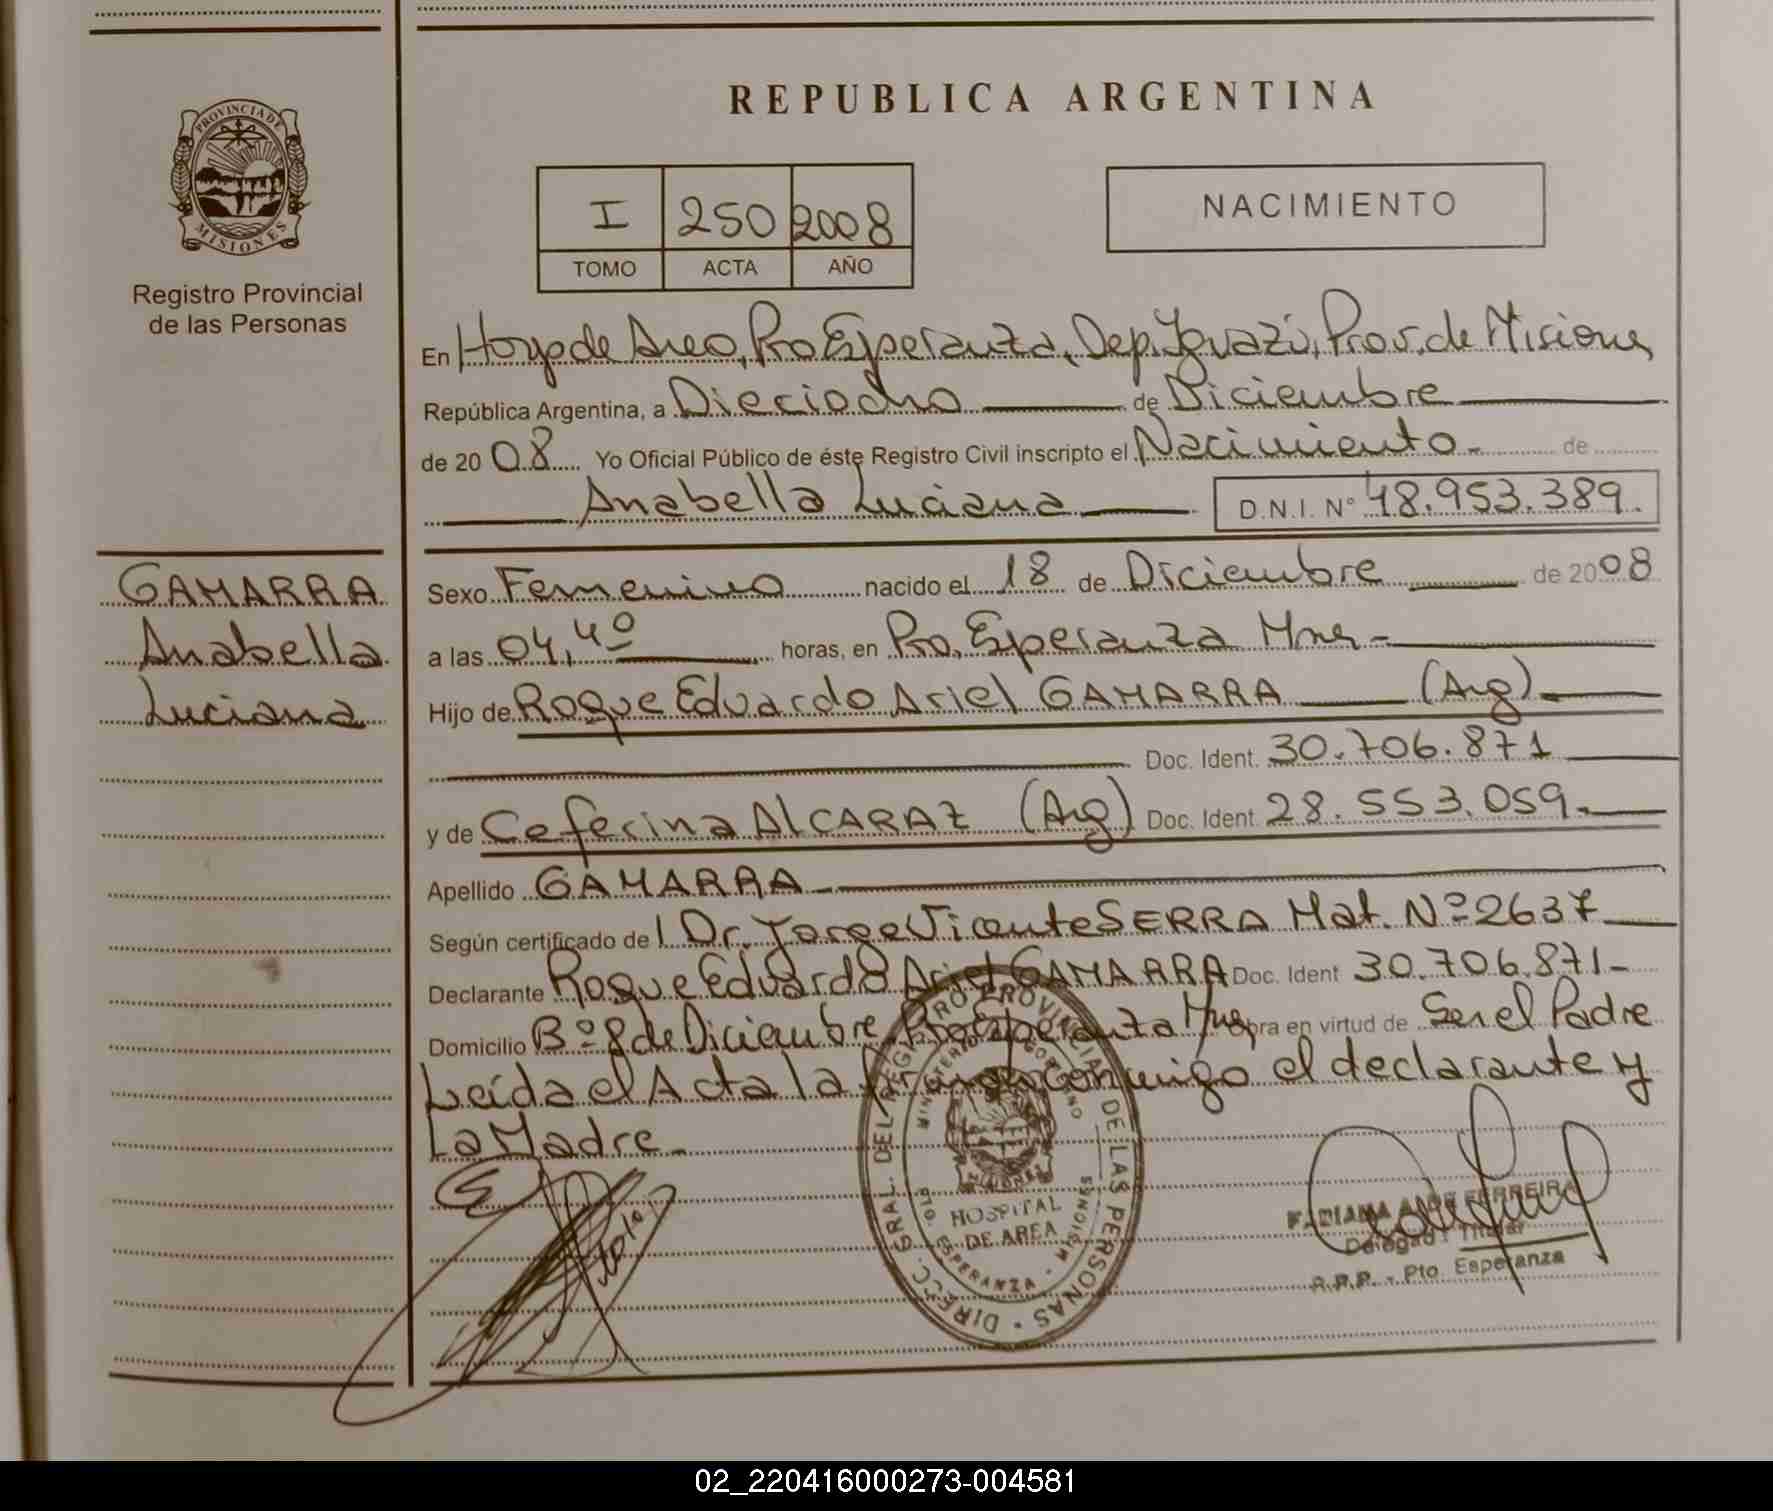 REPUBLICA ARGENTINA
PROVINCIA DE
MISIONES
Registro Provincial
de las Personas
I 250 2008
TOMO ACTA AÑO
NACIMIENTO
En Hosp de Area, Pto Esperanza, Dep. Iguazú, Prov. de Misiones
República Argentina, a Dieciocho de Diciembre
de 2008 Yo Oficial Público de éste Registro Civil inscripto el Nacimiento - de
Anabella Luciana D.N.I. Nº 48.953.389.
GAMARRA
Anabella
Luciana
Sexo Femenino nacido el 18 de Diciembre de 2008
a las 04,40 horas, en Pto. Esperanza Mnes -
Hijo de Roque Eduardo Ariel GAMARRA (Arg)
Doc. Ident. 30.706.871
y de Ceferina ALCARAZ (Arg) Doc. Ident. 28.553.059.
Apellido GAMARRA
Según certificado de l Dr. Jorge Vicente SERRA Mat. Nº 2637
Declarante Roque Eduardo Ariel GAMARRA Doc. Ident 30.706.871-
Domicilio Bº 8 de Diciembre Pto Esperanza Mnes Obra en virtud de Ser el Padre
Leída el Acta la firman conmigo el declarante y
La Madre-
DIRECC. GRAL. DEL REGISTRO PROVINCIAL DE LAS PERSONAS
MINISTERIO GOBIERNO
MISIONES
HOSPITAL
DE AREA
PTO. ESPERANZA - MISIONES
FABIANA FERREIRA
Delegada Titular
R.P.P. - Pto. Esperanza
02_220416000273-004581